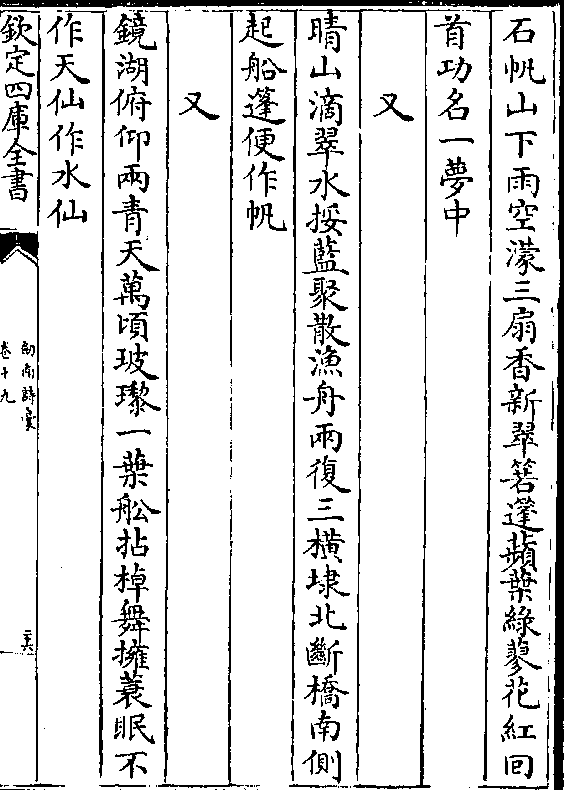 石帆山下雨空濛三扇香新翠箬蓬蘋葉綠蓼花紅回
首功名一夢中
又
晴山滴翠水挼藍聚散漁舟兩復三橫埭北斷橋南側
起船蓬便作帆
又
鏡湖俯仰兩青天萬頃玻瓈一葉舩拈棹舞擁蓑眠不
作天仙作水仙
欽定四庫全書
劍南詩稾
卷十九